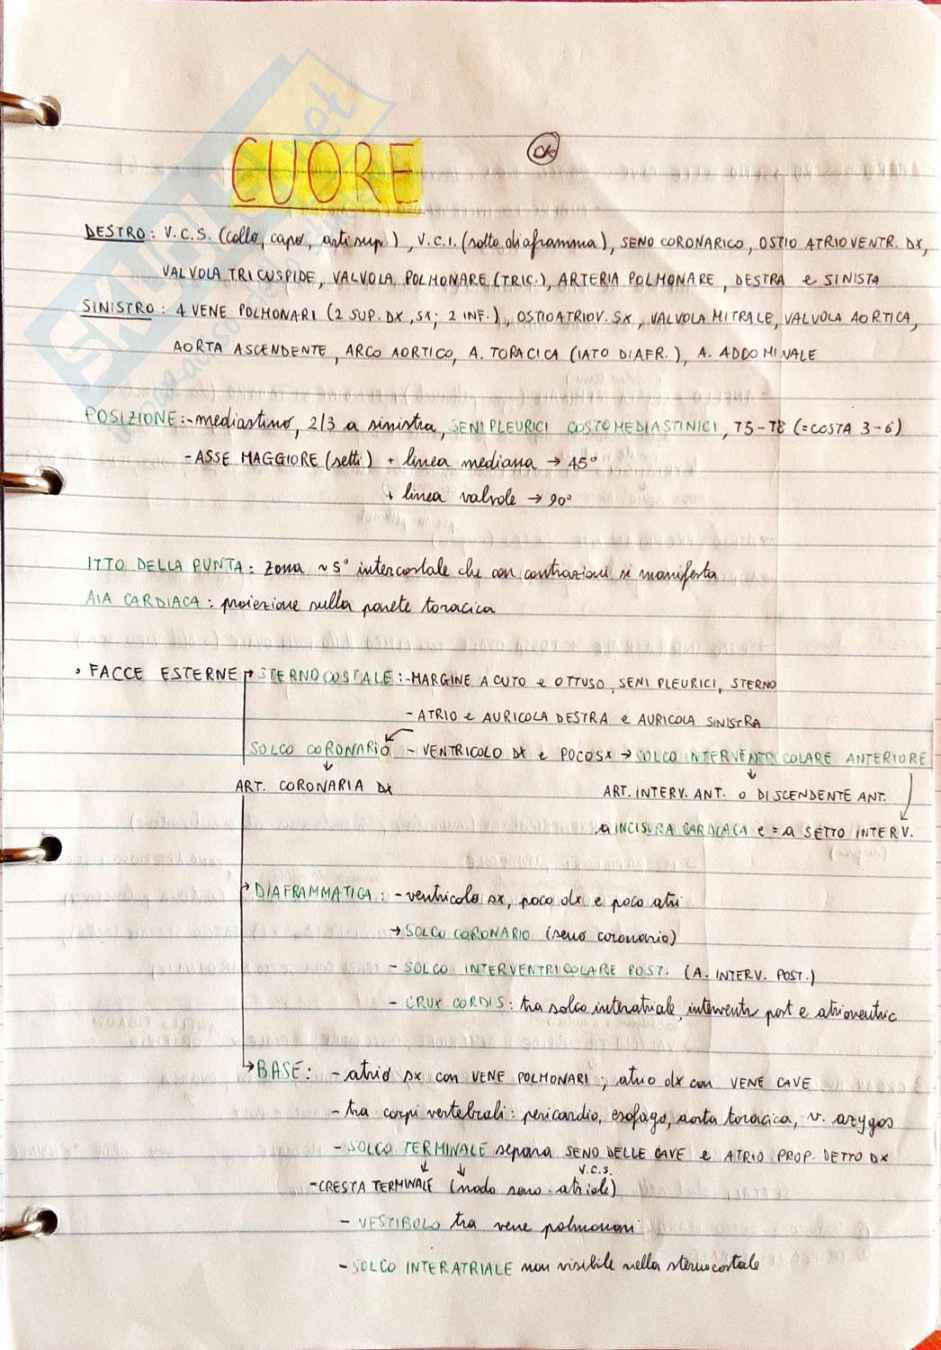 CUORE
ok
DESTRO: V.C.S. (collo, capo, arti sup.), V.C.I. (sotto diaframma), SENO CORONARICO, OSTIO ATRIOVENTR. DX,
VALVOLA TRICUSPIDE, VALVOLA POLMONARE (TRIC.), ARTERIA POLMONARE, DESTRA e SINISTA
SINISTRO: 4 VENE POLMONARI (2 SUP. DX, SX; 2 INF.), OSTIO ATRIOV. SX, VALVOLA MITRALE, VALVOLA AORTICA,
AORTA ASCENDENTE, ARCO AORTICO, A. TORACICA (IATO DIAFR.), A. ADDOMINALE
POSIZIONE: - mediastino, 2/3 a sinistra, SENI PLEURICI COSTOMEDIASTINICI, T5-T8 (= COSTA 3-6)
- ASSE MAGGIORE (setti) + linea mediana → 45°
+ linea valvole → 90°
ITTO DELLA PUNTA: zona ~ 5° intercostale che con contrazioni si manifesta
AIA CARDIACA: proiezione sulla parete toracica
• FACCE ESTERNE → STERNOCOSTALE: - MARGINE ACUTO e OTTUSO, SENI PLEURICI, STERNO
- ATRIO e AURICOLA DESTRA e AURICOLA SINISTRA
SOLCO CORONARIO ← - VENTRICOLO DX e POCO SX → SOLCO INTERVENTRICOLARE ANTERIORE
↓ ART. CORONARIA DX ↓ ART. INTERV. ANT. O DISCENDENTE ANT.
a INCISURA CARDIACA e = a SETTO INTERV.
→ DIAFRAMMATICA: - ventricolo sx, poco dx e poco atri
→ SOLCO CORONARIO (seno coronario)
- SOLCO INTERVENTRICOLARE POST. (A. INTERV. POST.)
- CRUX CORDIS: tra solco interatriale, interventr post e atrioventric
→ BASE: - atrio sx con VENE POLMONARI; atrio dx con VENE CAVE
- tra corpi vertebrali: pericardio, esofago, aorta toracica, v. azygos
- SOLCO TERMINALE separa SENO DELLE CAVE e ATRIO PROP. DETTO DX
↓ ↓ V.C.S.
- CRESTA TERMINALE (nodo seno-atriale)
- VESTIBOLO tra vene polmonari
- SOLCO INTERATRIALE non visibile nella sternocostale